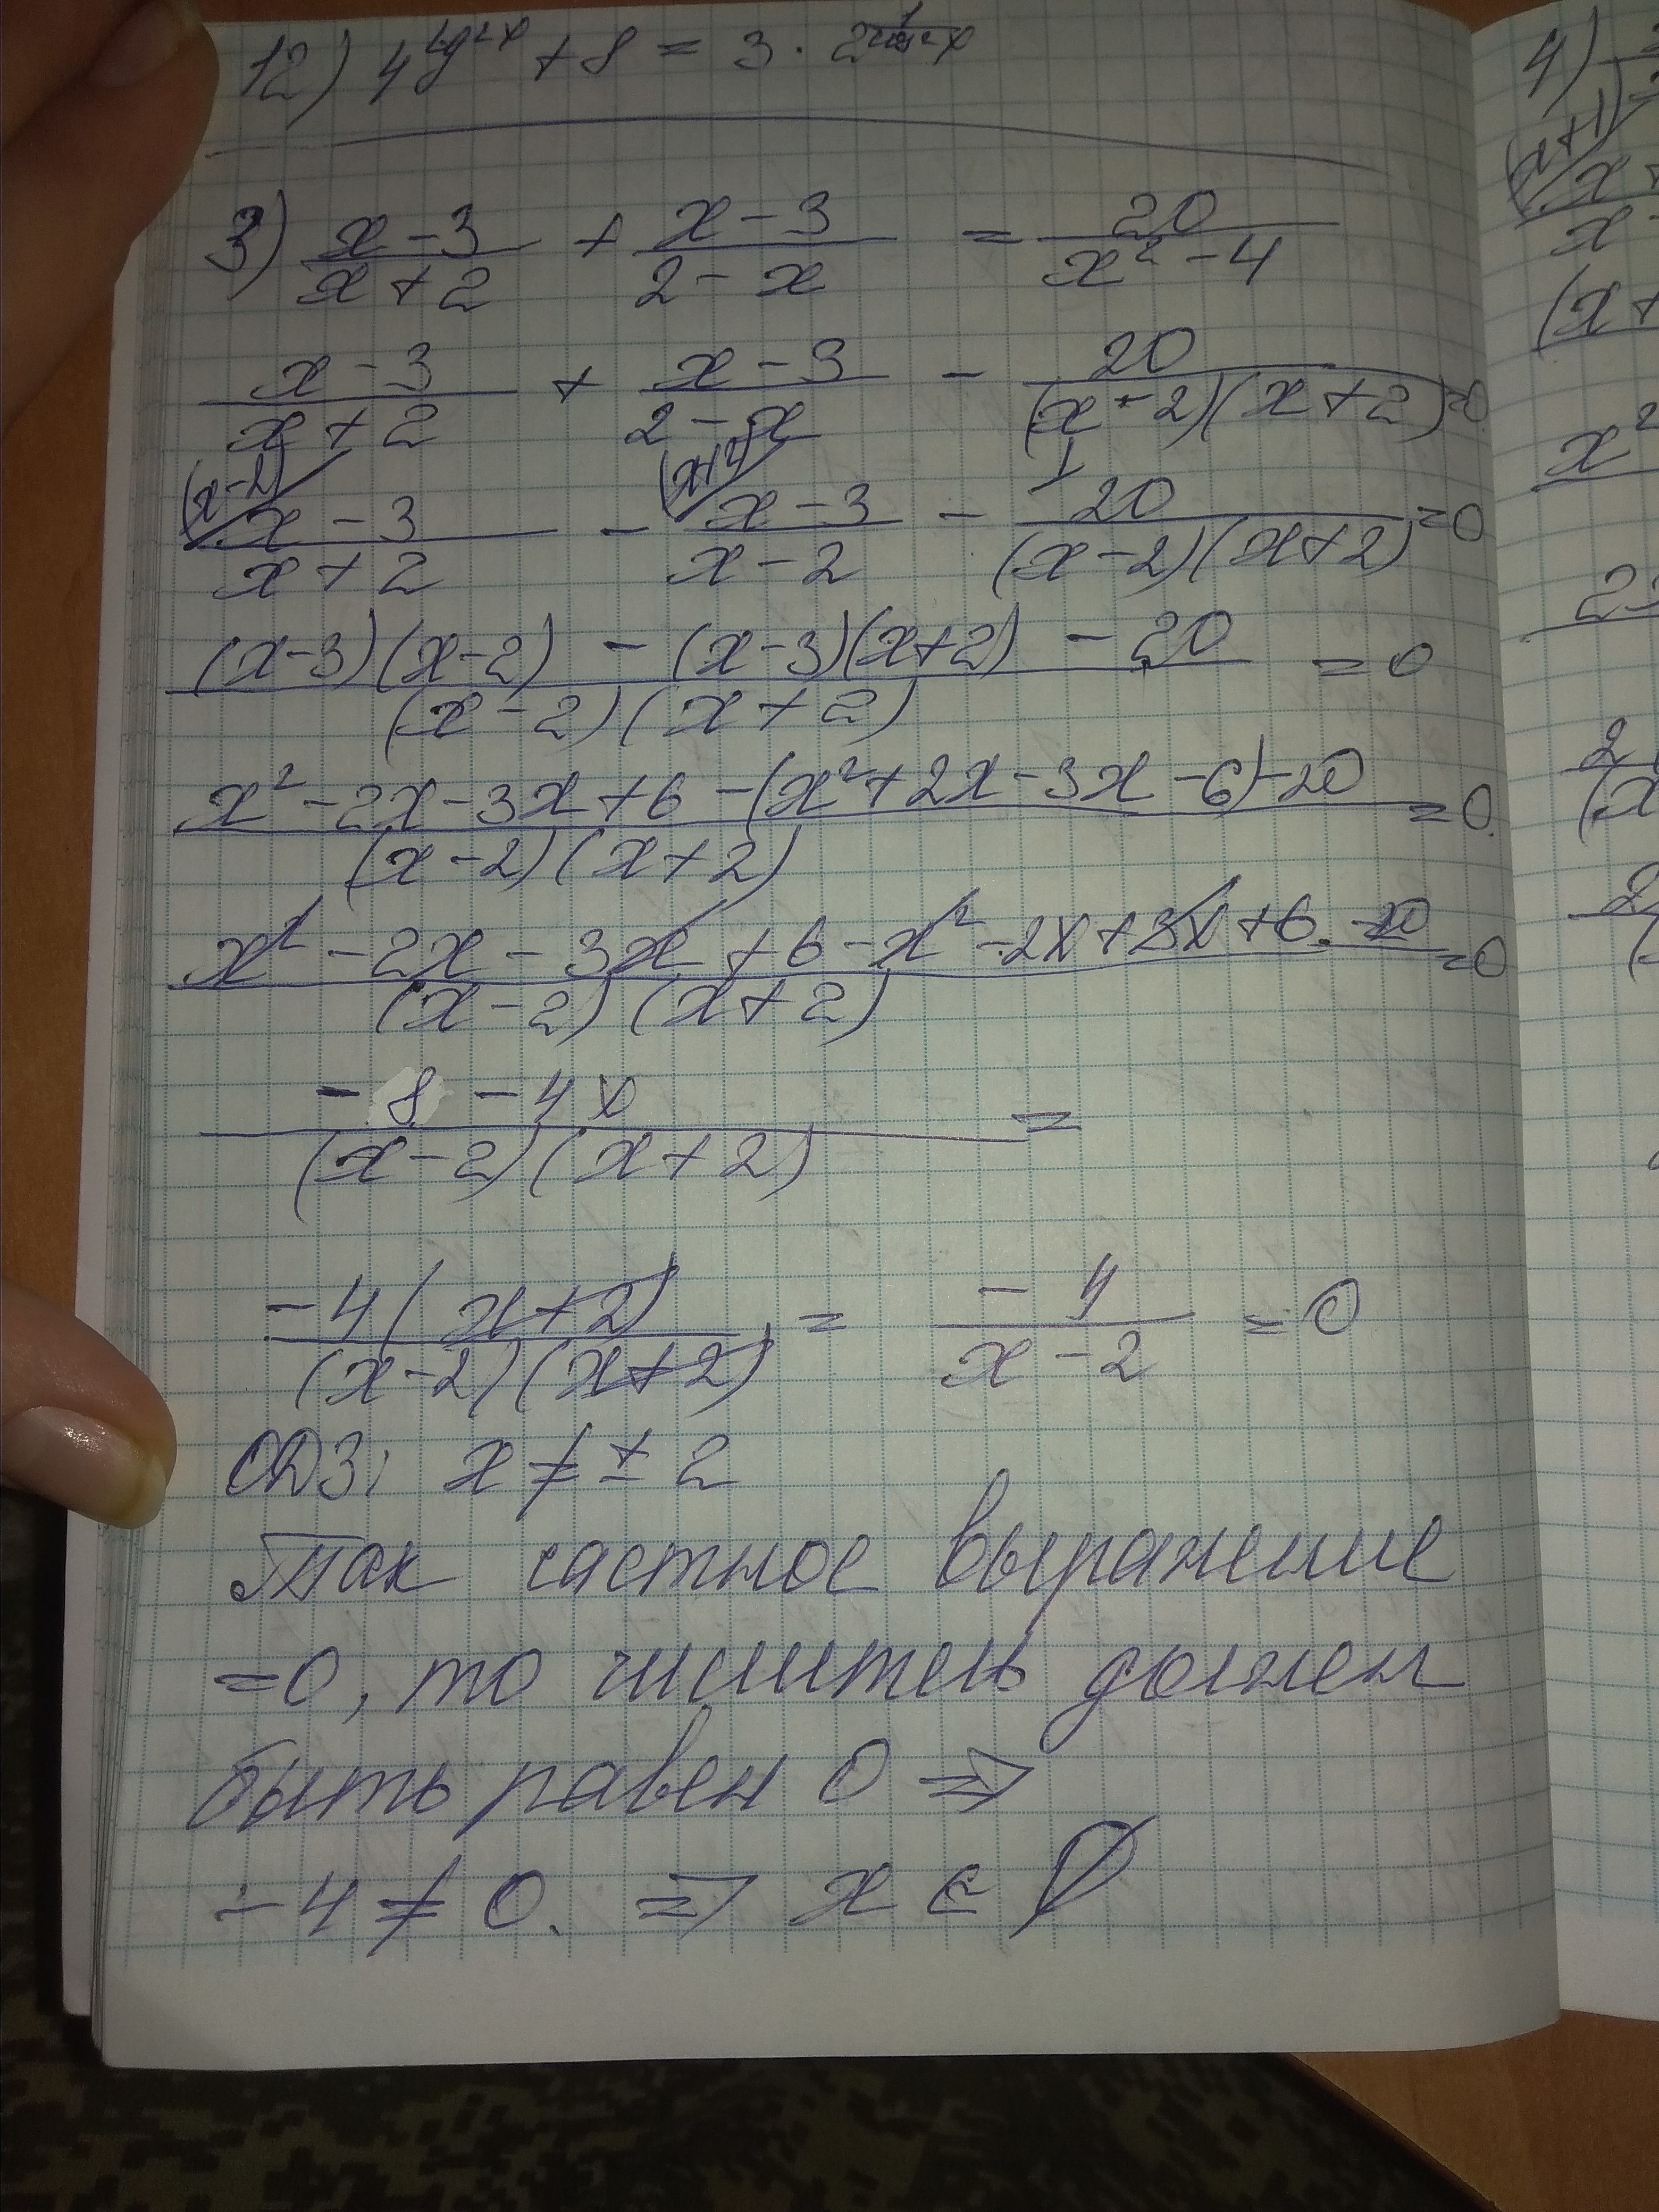 12) 4^{tg²x} + 8 = 3 · 2^{1/cos²x}
3) (x-3)/(x+2) + (x-3)/(2-x) = 20/(x²-4)
(x-3)/(x+2) + (x-3)/(2-x) - 20/((x-2)(x+2)) = 0
(x-2) (x+2) 1
(x-3)/(x+2) - (x-3)/(x-2) - 20/((x-2)(x+2)) = 0
((x-3)(x-2) - (x-3)(x+2) - 20)/((x-2)(x+2)) = 0
(x² - 2x - 3x + 6 - (x² + 2x - 3x - 6) - 20)/((x-2)(x+2)) = 0
(x² - 2x - 3x + 6 - x² - 2x + 3x + 6 - 20)/((x-2)(x+2)) = 0
(-8 - 4x)/((x-2)(x+2)) =
-4(x+2)/((x-2)(x+2)) = -4/(x-2) = 0
ОДЗ: x ≠ ± 2
Так частное выражение
=0, то числитель должен
быть равен 0 ⇒
-4 ≠ 0. ⇒ x ∈ ∅
4)
(x+1)
(x+
x²